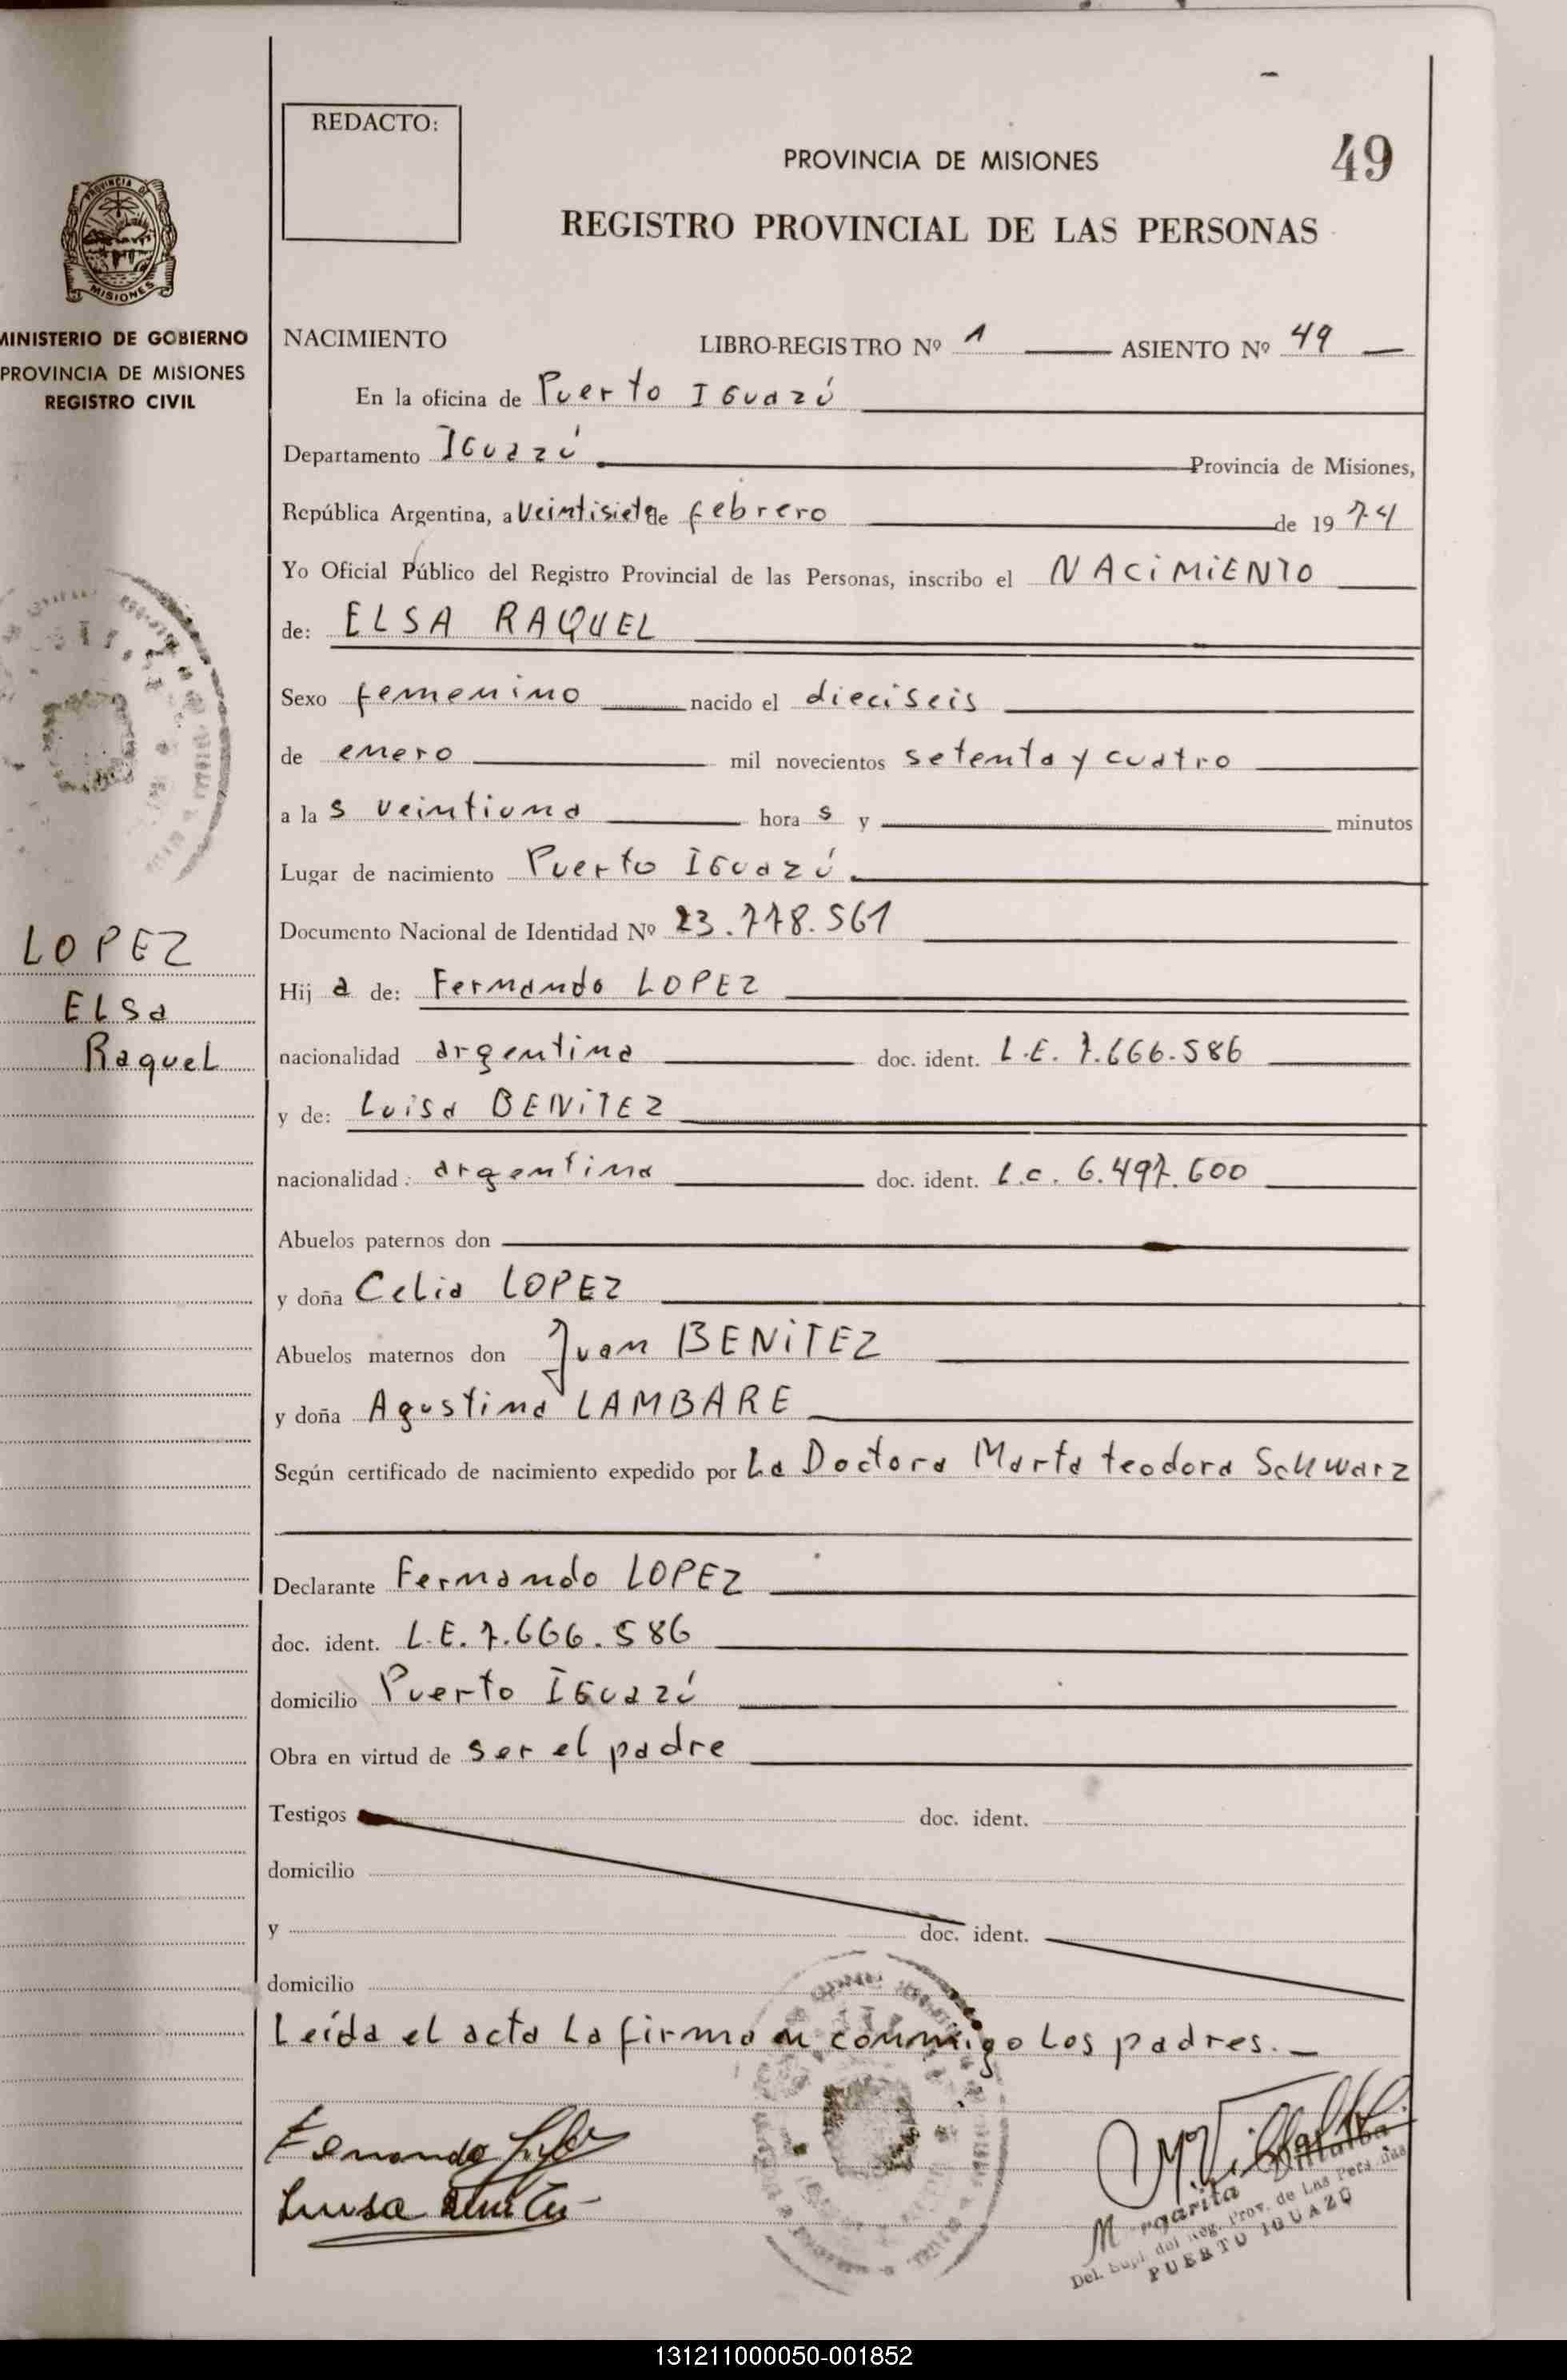 REDACTO:
PROVINCIA DE MISIONES
49
REGISTRO PROVINCIAL DE LAS PERSONAS
MISIONES
MINISTERIO DE GOBIERNO
PROVINCIA DE MISIONES
REGISTRO CIVIL
NACIMIENTO LIBRO-REGISTRO Nº 1 ASIENTO Nº 49
En la oficina de Puerto IGuazú
Departamento IGuazú Provincia de Misiones,
República Argentina, a Veintisiete de febrero de 1974
Yo Oficial Público del Registro Provincial de las Personas, inscribo el NACiMiENTO
de: ELSA RAQUEL
Sexo femenino nacido el dieciseis
de enero mil novecientos setenta y cuatro
a las veintiuna horas y minutos
Lugar de nacimiento Puerto IGuazú
Documento Nacional de Identidad Nº 23.778.561
LOPEZ
ELSa
Raquel
Hija de: Fernando LOPEZ
nacionalidad argentina doc. ident. L.E. 7.666.586
y de: Luisa BENiTEZ
nacionalidad: argentina doc. ident. L.C. 6.497.600
Abuelos paternos don
y doña Celia LOPEZ
Abuelos maternos don Juan BENiTEZ
y doña Agustina LAMBARE
Según certificado de nacimiento expedido por La Doctora Marta teodora Schwarz
Declarante Fernando LOPEZ
doc. ident. L.E. 7.666.586
domicilio Puerto IGuazú
Obra en virtud de ser el padre
Testigos doc. ident.
domicilio
y doc. ident.
domicilio
Leída el acta la firman conmigo los padres.
Fernando López
Luisa Benitez
Del. Supl. del Reg. Prov. de Las Personas
PUERTO IGUAZU
131211000050-001852